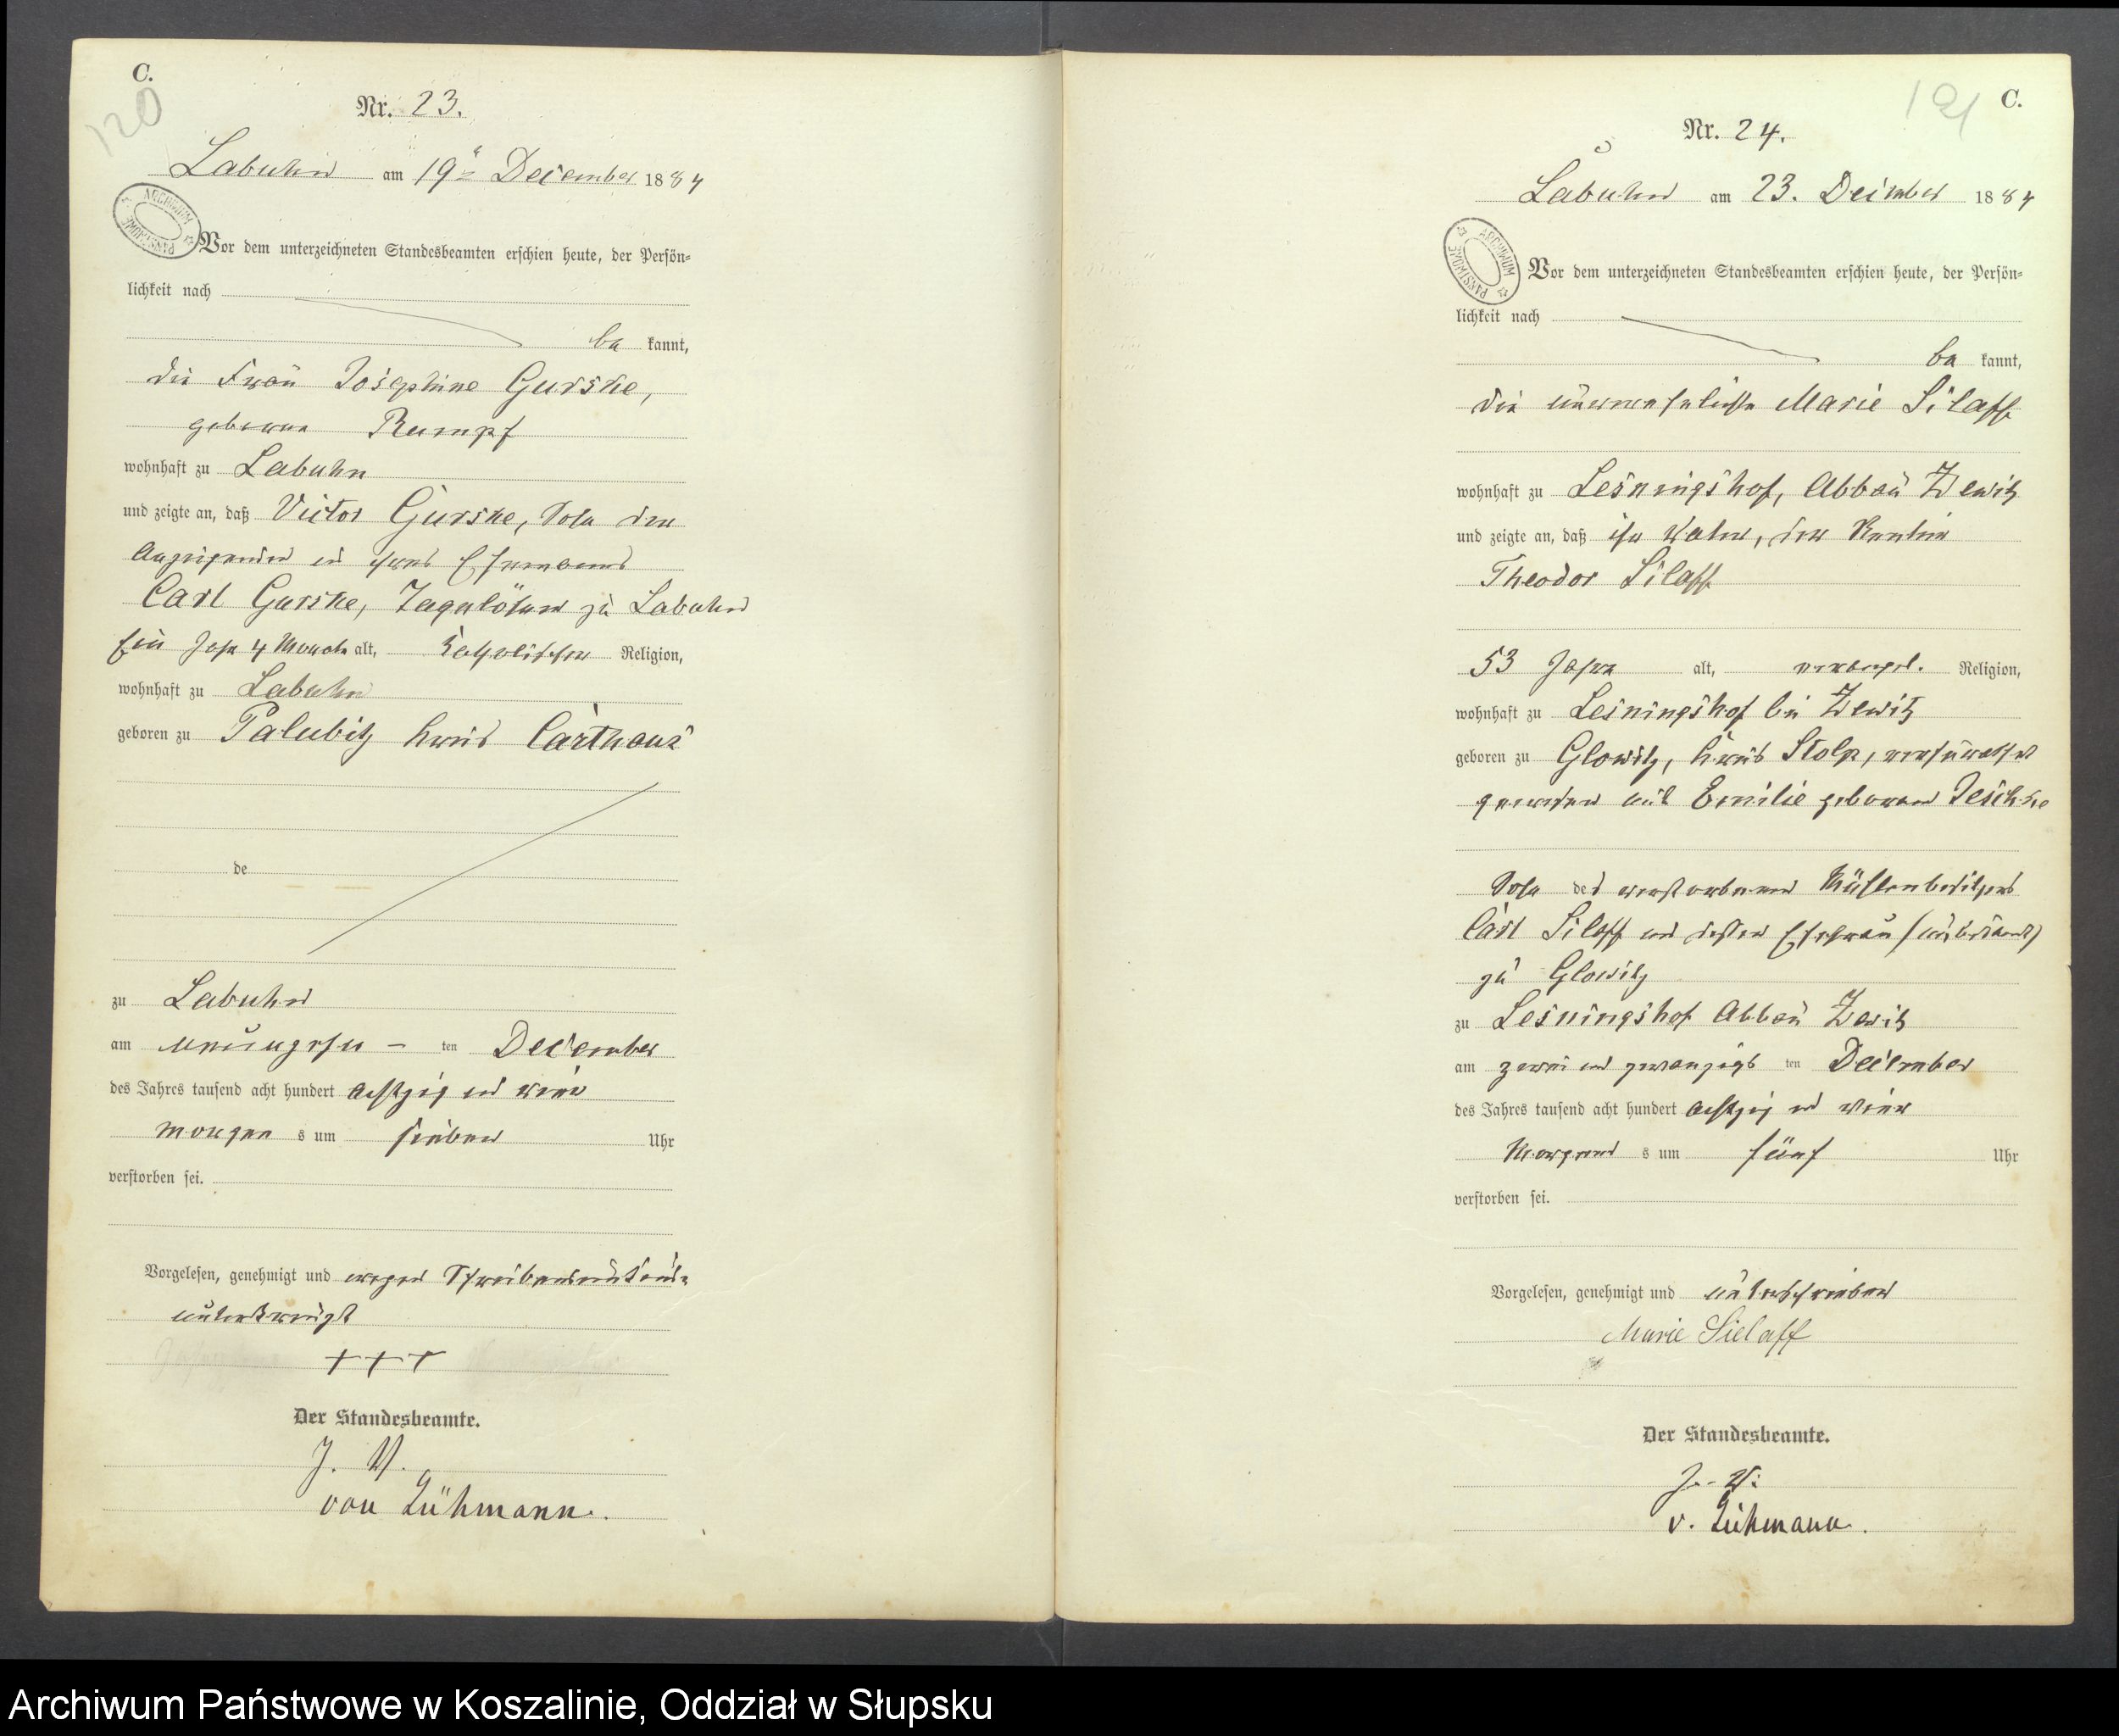 C.
120
Nr. 23.
Labuhn am 19ten December 1884
ARCHIWUM PAŃSTWOWE
Vor dem unterzeichneten Standesbeamten erschien heute, der Persön-
lichkeit nach
be kannt,
die Frau Josephine Gurske,
geborene Rumpf
wohnhaft zu Labuhn
und zeigte an, daß Victor Gurske, Sohn der
Anzeigenden und ihres Ehemanns
Carl Gurske, Tagelöhner zu Labuhn
Ein Jahr 4 Monate alt, katholischer Religion,
wohnhaft zu Labuhn
geboren zu Palubitz Kreis Carthaus
de
zu Labuhn
am neunzehn ten December
des Jahres tausend acht hundert achtzig und vier
Morgen s um sieben Uhr
verstorben sei.
Vorgelesen, genehmigt und wegen Schreibensunkunde
unterkreuzt
+++
Der Standesbeamte.
J. V.
von Lühmann.
C.
121
Nr. 24.
Labuhn am 23. December 1884
ARCHIWUM PAŃSTWOWE
Vor dem unterzeichneten Standesbeamten erschien heute, der Persön-
lichkeit nach
be kannt,
die unverehelichte Marie Silaff
wohnhaft zu Lesningshof, Abbau Zewitz
und zeigte an, daß ihr Vater, der Rentier
Theodor Silaff
53 Jahre alt, evangel. Religion,
wohnhaft zu Lesningshof bei Zewitz
geboren zu Glowitz, Kreis Stolp, verheirathet
gewesen mit Emilie geborenen Jeschke
Sohn des verstorbenen Mühlenbesitzers
Carl Silaff und dessen Ehefrau (unbekannt)
zu Glowitz
zu Lesningshof Abbau Zewitz
am zwei und zwanzigs ten December
des Jahres tausend acht hundert achtzig und vier
Morgens s um fünf Uhr
verstorben sei.
Vorgelesen, genehmigt und unterschrieben
Marie Sielaff
Der Standesbeamte.
J. V.
v. Lühmann.
Archiwum Państwowe w Koszalinie, Oddział w Słupsku